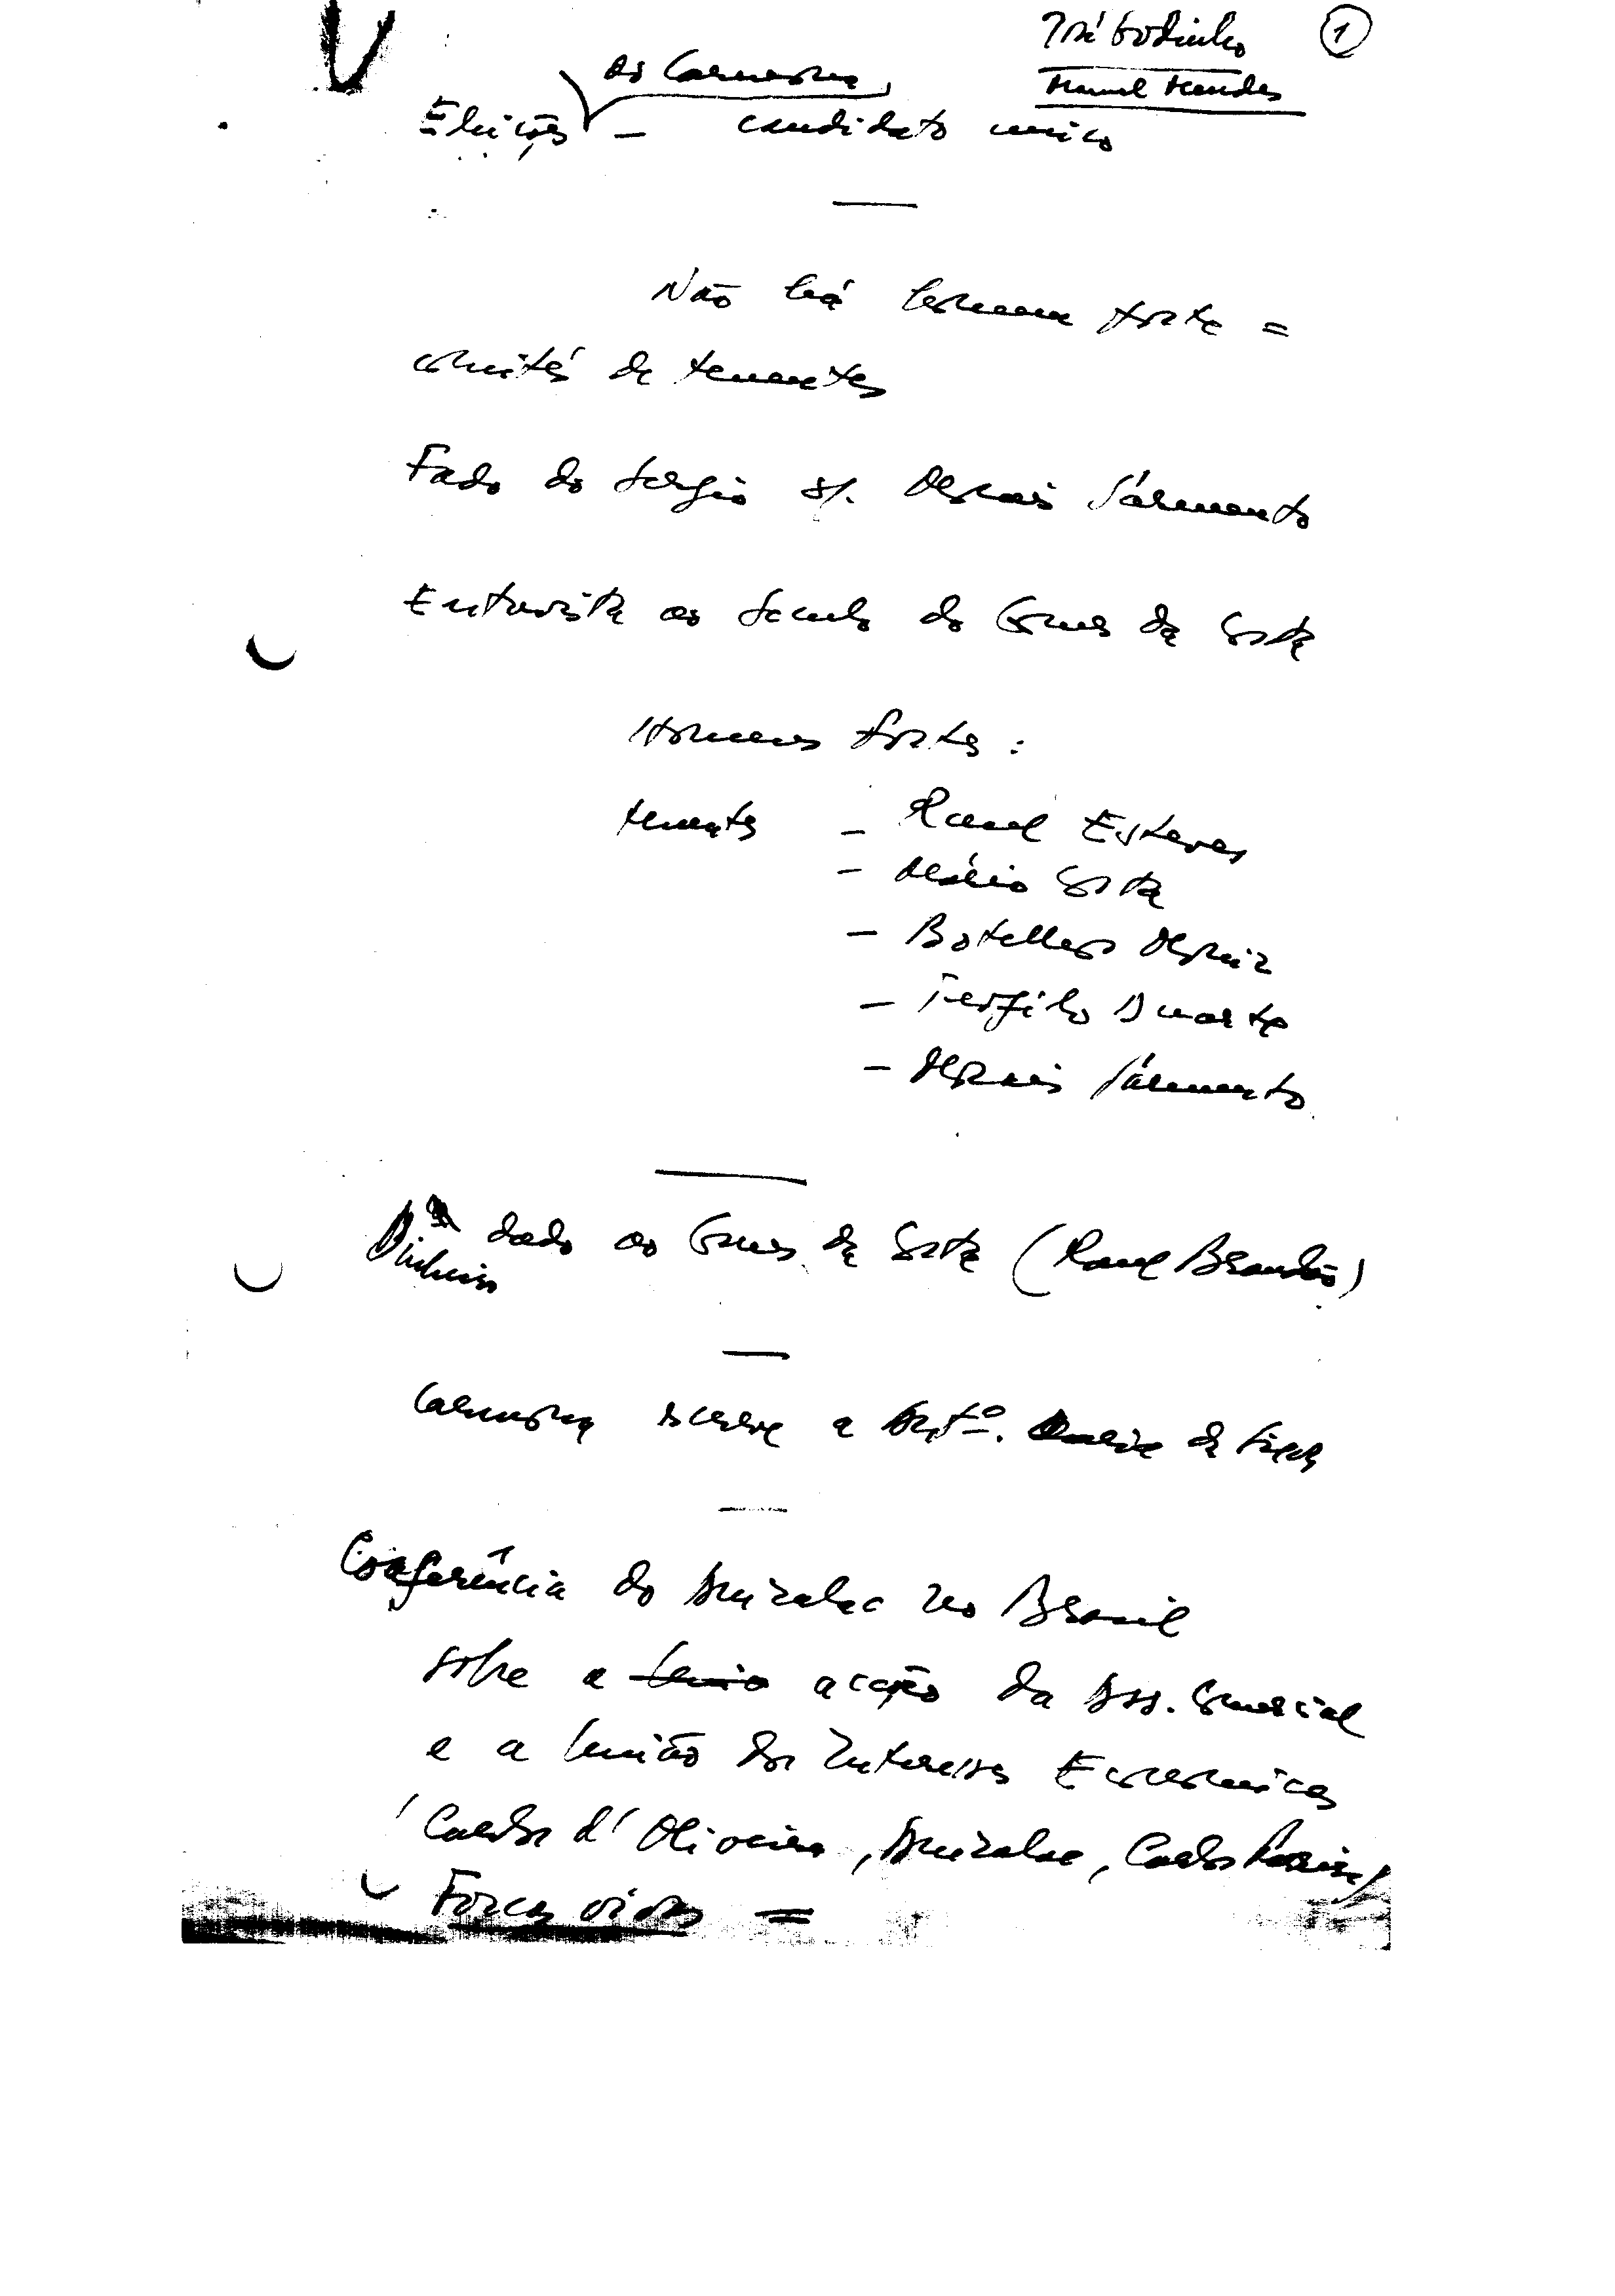 José Godinho 1
Manuel Mendes
do Carmona,
Eleições — candidato unico
Não há homem forte =
comités de tenentes
Fado do Sergio s/. Morais Sármento
Entrevista ao Seculo do Gomes da Costa
Homens fortes :
tenentes — Raul Esteves
— Mário Costa
— Botelho Moniz
— Teofilo Duarte
— Morais Sármento
Dinheiro dado ao Gomes da Costa (Raul Brandão)
Carmona escreve a Antº. Maria da Silva
Conferência do Amzalac no Brasil
sobre a acção da Ass. Comercial
e a União dos Interesses Economicos
(Carlos d'Oliveira, Amzalac, Carlos Pereira)
Forças vivas =